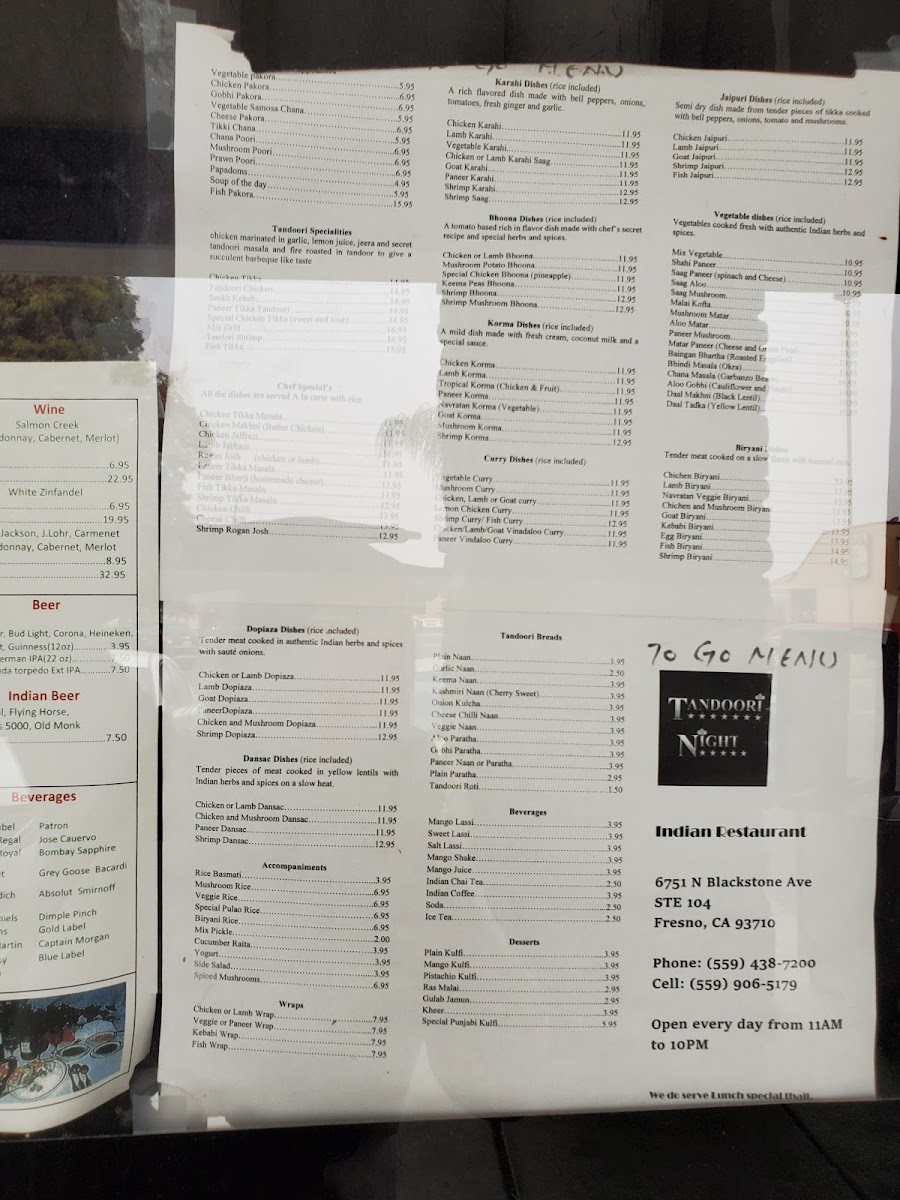 TO GO MENU
Vegetable pakora 5.95
Chicken Pakora 6.95
Gobhi Pakora 6.95
Vegetable Samosa Chana 5.95
Cheese Pakora 6.95
Tikki Chana 5.95
Chana Poori 6.95
Mushroom Poori 6.95
Prawn Poori 6.95
Papadoms 4.95
Soup of the day 5.95
Fish Pakora 15.95
Tandoori Specialities
chicken marinated in garlic, lemon juice, jeera and secret
tandoori masala and fire roasted in tandoor to give a
succulent barbeque like taste
Chicken Tikka
Tandoori Chicken 14.95
Seekh Kebab 14.95
Paneer Tikka Tandoori 14.95
Special Chicken Tikka (sweet and sour) 14.95
Mix Grill 16.95
Tandori Shrimp 16.95
Fish Tikka 15.95
Chef Special's
All the dishes are served A la carte with rice
Chicken Tikka Masala 11.95
Chicken Makhni (Butter Chicken) 11.95
Chicken Jalfrazi
Lamb Jalfrazi
Rogan Josh (chicken or lamb)
Paneer Tikka Masala
Paneer Bhurji (homemade cheese)
Fish Tikka Masala 12.95
Shrimp Tikka Masala 12.95
Chicken Chilli
Cheese Chilli
Shrimp Rogan Josh 12.95
Karahi Dishes (rice included)
A rich flavored dish made with bell peppers, onions,
tomatoes, fresh ginger and garlic.
Chicken Karahi 11.95
Lamb Karahi 11.95
Vegetable Karahi 11.95
Chicken or Lamb Karahi Saag 11.95
Goat Karahi 11.95
Paneer Karahi 11.95
Shrimp Karahi 12.95
Shrimp Saag 12.95
Bhoona Dishes (rice included)
A tomato based rich in flavor dish made with chef's secret
recipe and special herbs and spices.
Chicken or Lamb Bhoona 11.95
Mushroom Potato Bhoona 11.95
Special Chicken Bhoona (pineapple) 11.95
Keema Peas Bhoona 11.95
Shrimp Bhoona 12.95
Shrimp Mushroom Bhoona 12.95
Korma Dishes (rice included)
A mild dish made with fresh cream, coconut milk and a
special sauce.
Chicken Korma 11.95
Lamb Korma 11.95
Tropical Korma (Chicken & Fruit) 11.95
Paneer Korma 11.95
Navratan Korma (Vegetable) 11.95
Goat Korma 11.95
Mushroom Korma 11.95
Shrimp Korma 12.95
Curry Dishes (rice included)
Vegetable Curry 11.95
Mushroom Curry 11.95
Chicken, Lamb or Goat curry 11.95
Lemon Chicken Curry 11.95
Shrimp Curry/ Fish Curry 12.95
Chicken/Lamb/Goat Vinadaloo Curry 11.95
Paneer Vindaloo Curry 11.95
Jaipuri Dishes (rice included)
Semi dry dish made from tender pieces of tikka cooked
with bell peppers, onions, tomato and mushrooms.
Chicken Jaipuri 11.95
Lamb Jaipuri 11.95
Goat Jaipuri 11.95
Shrimp Jaipuri 12.95
Fish Jaipuri 12.95
Vegetable dishes (rice included)
Vegetables cooked fresh with authentic Indian herbs and
spices.
Mix Vegetable 10.95
Shahi Paneer 10.95
Saag Paneer (spinach and Cheese) 10.95
Saag Aloo 10.95
Saag Mushroom
Malai Kofta
Mushroom Matar
Aloo Matar
Paneer Mushroom
Matar Paneer (Cheese and Green Peas)
Baingan Bhartha (Roasted Eggplant)
Bhindi Masala (Okra)
Chana Masala (Garbanzo Bean)
Aloo Gobhi (Cauliflower and
Daal Makhni (Black Lentil)
Daal Tadka (Yellow Lentil)
Biryani Dishes
Tender meat cooked on a slow flame with basmati rice
Chichen Biryani
Lamb Biryani
Navratan Veggie Biryani
Chichen and Mushroom Biryani
Goat Biryani
Kebabi Biryani 13.95
Egg Biryani 13.95
Fish Biryani 14.95
Shrimp Biryani 14.95
Dopiaza Dishes (rice included)
Tender meat cooked in authentic Indian herbs and spices
with sauté onions.
Chicken or Lamb Dopiaza 11.95
Lamb Dopiaza 11.95
Goat Dopiaza 11.95
PaneerDopiaza 11.95
Chicken and Mushroom Dopiaza 11.95
Shrimp Dopiaza 12.95
Dansac Dishes (rice included)
Tender pieces of meat cooked in yellow lentils with
Indian herbs and spices on a slow heat.
Chicken or Lamb Dansac 11.95
Chicken and Mushroom Dansac 11.95
Paneer Dansac 11.95
Shrimp Dansac 12.95
Accompaniments
Rice Basmati 3.95
Mushroom Rice 6.95
Veggie Rice 6.95
Special Pulao Rice 6.95
Biryani Rice 6.95
Mix Pickle 2.00
Cucumber Raita 3.95
Yogurt 3.95
Side Salad 3.95
Spiced Mushrooms 6.95
Wraps
Chicken or Lamb Wrap 7.95
Veggie or Paneer Wrap 7.95
Kebabi Wrap 7.95
Fish Wrap 7.95
Tandoori Breads
Plain Naan 1.95
Garlic Naan 2.50
Keema Naan 3.95
Kashmiri Naan (Cherry Sweet) 3.95
Onion Kulcha 3.95
Cheese Chilli Naan 3.95
Veggie Naan 3.95
Aloo Paratha 3.95
Gobhi Paratha 3.95
Paneer Naan or Paratha 3.95
Plain Paratha 2.95
Tandoori Roti 1.50
Beverages
Mango Lassi 3.95
Sweet Lassi 3.95
Salt Lassi 3.95
Mango Shake 3.95
Mango Juice 3.95
Indian Chai Tea 2.50
Indian Coffee 3.95
Soda 2.50
Ice Tea 2.50
Desserts
Plain Kulfi 3.95
Mango Kulfi 3.95
Pistachio Kulfi 3.95
Ras Malai 2.95
Gulab Jamun 2.95
Kheer 3.95
Special Punjabi Kulfi 5.95
TO GO MENU
TANDOORI
NIGHT
Indian Restaurant
6751 N Blackstone Ave
STE 104
Fresno, CA 93710
Phone: (559) 438-7200
Cell: (559) 906-5179
Open every day from 11AM
to 10PM
We do serve Lunch special thali.
Wine
Salmon Creek
donnay, Cabernet, Merlot)
6.95
22.95
White Zinfandel
6.95
19.95
Jackson, J.Lohr, Carmenet
donnay, Cabernet, Merlot
8.95
32.95
Beer
r, Bud Light, Corona, Heineken,
t, Guinness(12oz) 3.95
erman IPA(22 oz)
da torpedo Ext IPA 7.50
Indian Beer
l, Flying Horse,
s 5000, Old Monk
7.50
Beverages
bel Patron
Regal Jose Cauervo
Royal Bombay Sapphire
t Grey Goose Bacardi
dich Absolut Smirnoff
niels Dimple Pinch
ns Gold Label
artin Captain Morgan
y Blue Label